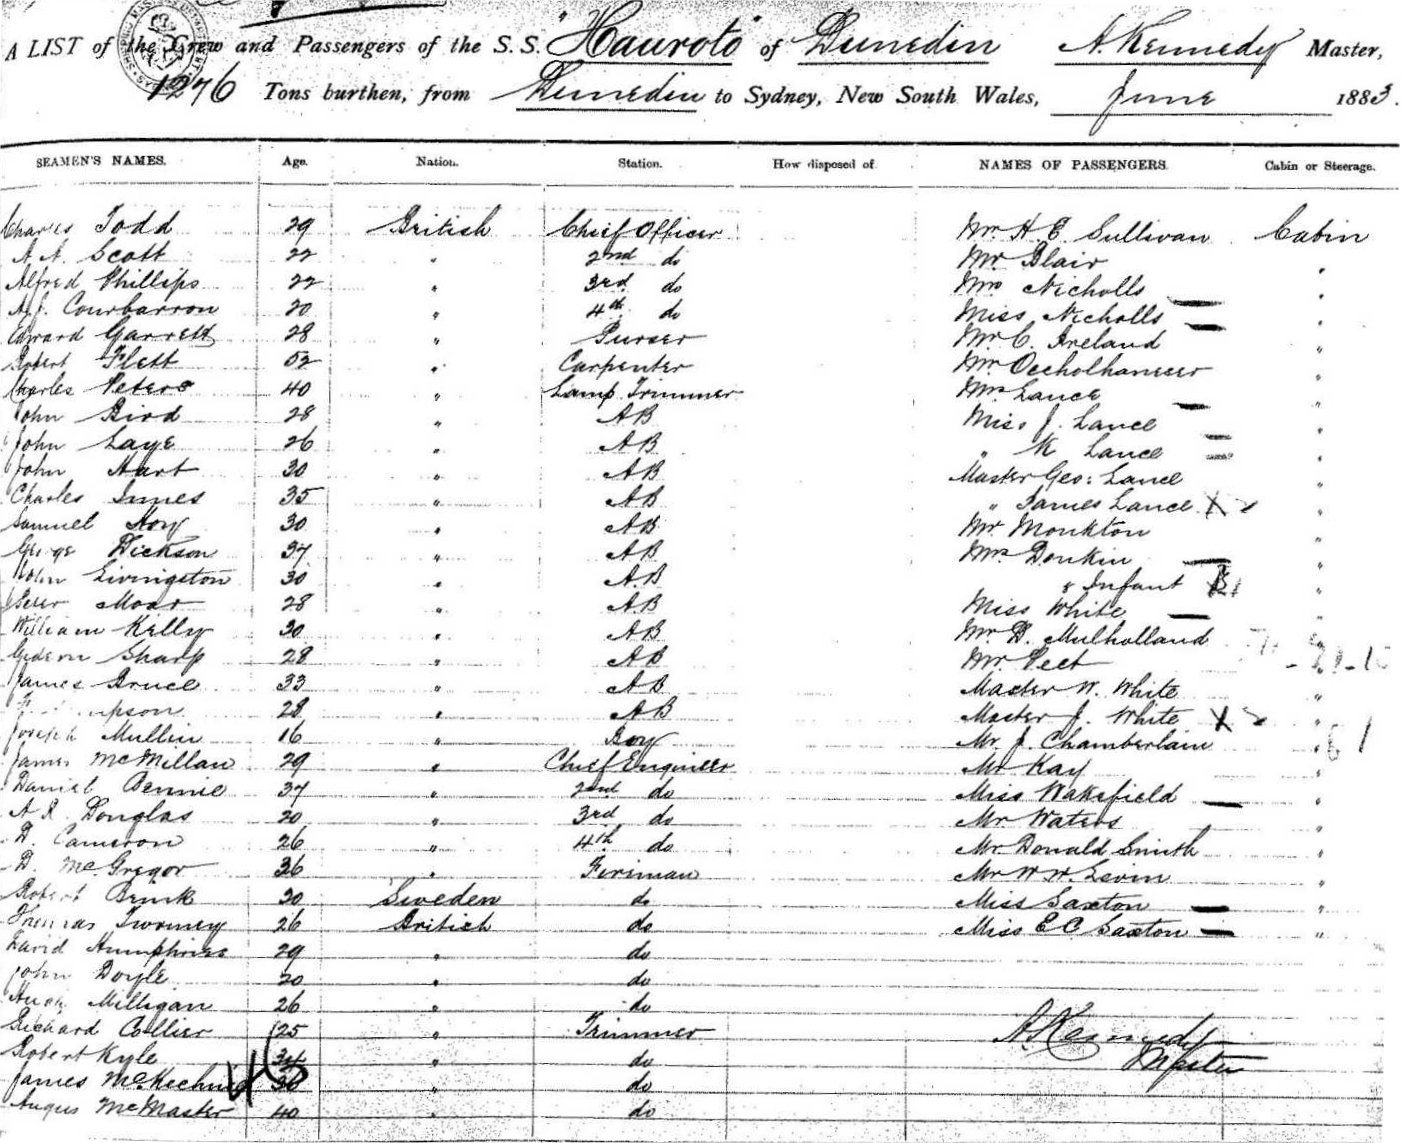 A LIST of the Crew and Passengers of the S.S. "Hauroto" of Dunedin A. Kennedy Master,
1276 Tons burthen, from Dunedin to Sydney, New South Wales, June 1883.
SEAMEN'S NAMES. Age. Nation. Station. How disposed of. NAMES OF PASSENGERS. Cabin or Steerage.
Charles Todd 29 British Chief Officer Mr H. E. Sullivan Cabin
A. A. Scott 22 " 2nd do Mr Blair "
Alfred Phillips 22 " 3rd do Mrs Nicholls "
A. J. Courbarron 20 " 4th do Miss Nicholls "
Edward Garrett 28 " Purser Mr C. Ireland "
Robert Flett 52 " Carpenter Mr "
Charles Peters 40 " Lamp Trimmer Mrs Lance "
John Bird 28 " AB Miss J. Lance "
John Laye 26 " AB " K Lance "
John Hart 30 " AB Master Geo: Lance "
Charles Innes 35 " AB " James Lance X 2 "
Samuel Hoy 30 " AB Mr Monkton "
George Dickson 37 " AB Mrs Donkin "
John Livingston 30 " AB & Infant "
Peter Moar 28 " AB Miss White "
William Kelly 30 " AB Mr D. Mulholland "
Gideon Sharp 28 " AB Mr Peet "
James Bruce 33 " AB Master W. White "
28 " AB Master J. White X 2 "
Joseph Mullin 16 " Boy Mr J. Chamberlain "
James McMillan 29 " Chief Engineer Mr Kay "
Daniel Bennie 37 " 2nd do Miss Wakefield "
A R Douglas 20 " 3rd do Mr Waters "
D. Cameron 26 " 4th do Mr Donald Smith "
D. McGregor 36 " Fireman Mr W. W. Levin "
Robert Brink 20 Sweden do Miss Saxton "
Thomas Twomey 26 British do Miss E C Saxton "
David Humphries 29 " do
John Doyle 20 " do
Hugh Milligan 26 " do
Richard Collier 25 " Trimmer A. Kennedy
Robert Kyle 34 " do Master
James McKechnie 38 " do
Angus McMaster 40 " do